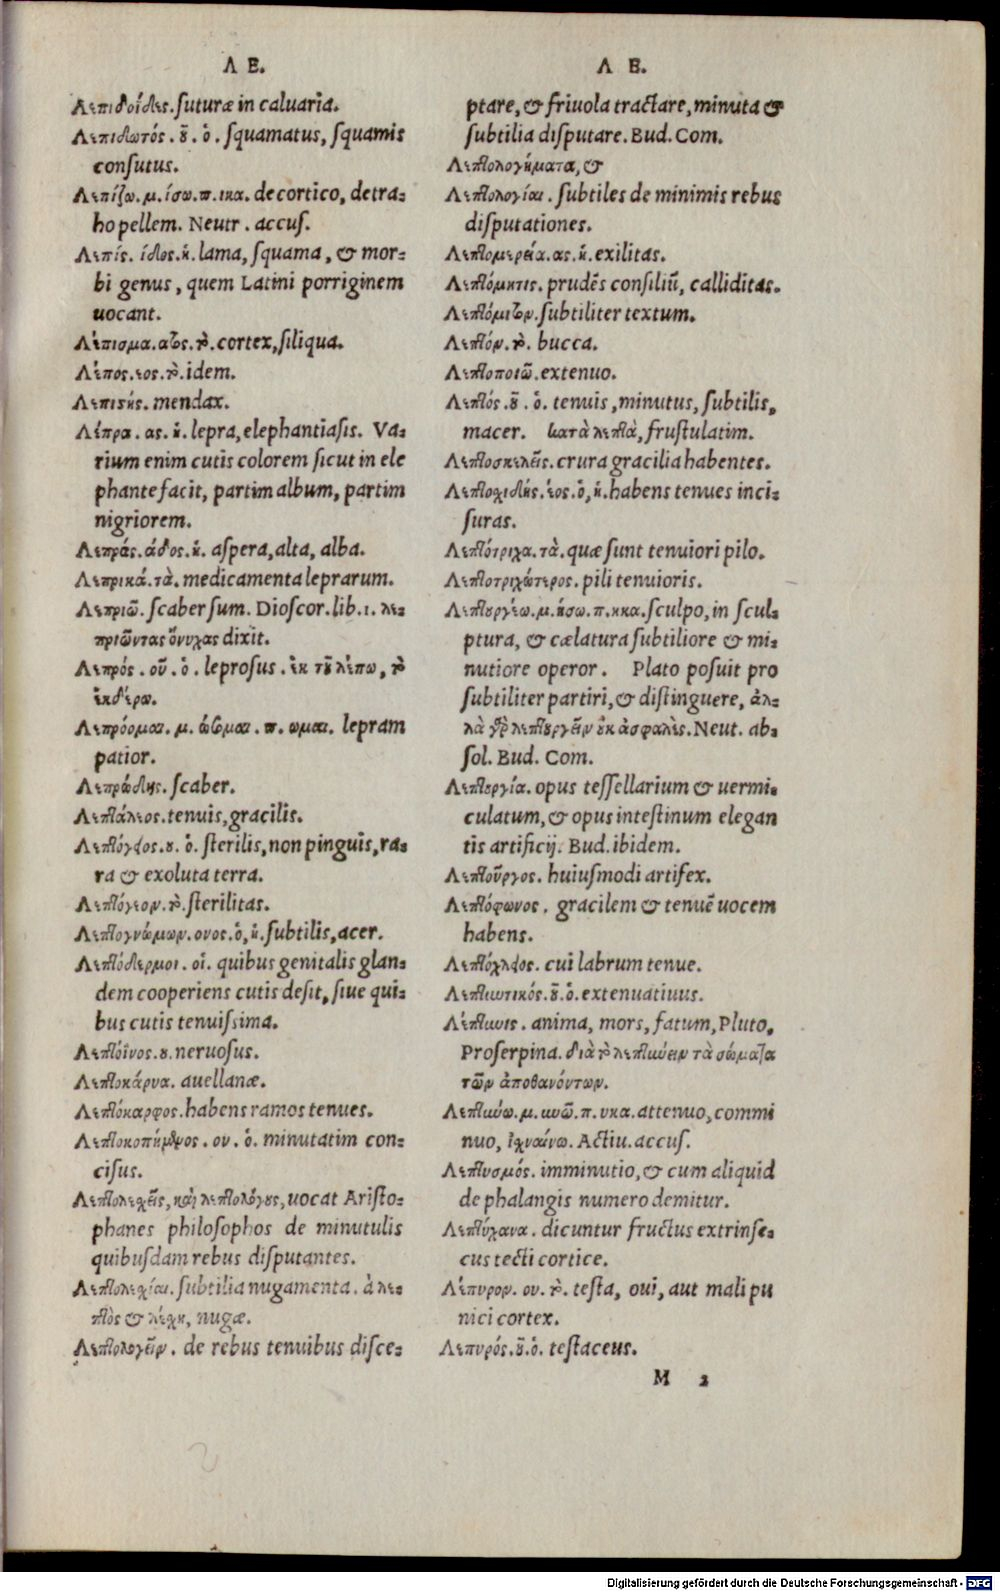 Λ Ε.
Λεπιδοίδες. ſuturæ in caluaria.
Λεπιδωτός. οῦ. ὁ. ſquamatus, ſquamis
conſutus.
Λεπίζω. μ. ίσω. π. ικα. decortico, detra-
ho pellem. Neutr. accuſ.
Λεπίς. ίδος. ἡ. lama, ſquama, & mor-
bi genus, quem Latini porriginem
uocant.
Λέπισμα. ατος. τὸ. cortex, ſiliqua.
Λέπος. εος. τὸ. idem.
Λεπιστής. mendax.
Λέπρα. ας. ἡ. lepra, elephantiaſis. Va-
rium enim cutis colorem ſicut in ele
phante facit, partim album, partim
nigriorem.
Λεπράς. άδος. ἡ. aſpera, alta, alba.
Λεπρικά. τὰ. medicamenta leprarum.
Λεπριῶ. ſcaber ſum. Dioſcor. lib. 1. λε-
πριῶντας ὄνυχας dixit.
Λεπρός. οῦ. ὁ. leproſus. ἐκ τοῦ λέπω, τὸ
ἐκδέρω.
Λεπρόομαι. μ. ώσομαι. π. ωμαι. lepram
patior.
Λεπρώδης. ſcaber.
Λεπτάλεος. tenuis, gracilis.
Λεπτόγεως. ου. ὁ. ſterilis, non pinguis, ra-
ra & exoluta terra.
Λεπτόγεον. τὸ. ſterilitas.
Λεπτογνώμων. ονος. ὁ, ἡ. ſubtilis, acer.
Λεπτόδερμοι. οἱ. quibus genitalis glan-
dem cooperiens cutis deſit, ſiue qui-
bus cutis tenuiſsima.
Λεπτόϊνος. ου. neruoſus.
Λεπτοκάρυα. auellanæ.
Λεπτόκαρφος. habens ramos tenues.
Λεπτοκοπήμενος. ου. ὁ. minutatim con-
ciſus.
Λεπτολεχεῖς, καὶ λεπτολόγους, uocat Ariſto-
phanes philoſophos de minutulis
quibuſdam rebus diſputantes.
Λεπτολεχίαι. ſubtilia nugamenta. à λε-
πτὸς & λέχη, nugæ.
Λεπτολογεῖν. de rebus tenuibus diſce-
Λ Ε.
ptare, & friuola tractare, minuta &
ſubtilia diſputare. Bud. Com.
Λεπτολογήματα, &
Λεπτολογίαι. ſubtiles de minimis rebus
diſputationes.
Λεπτομερεία. ας. ἡ. exilitas.
Λεπτόμητις. prudēs conſiliū, calliditas.
Λεπτόμιτον. ſubtiliter textum.
Λεπτόν. τὸ. bucca.
Λεπτοποιῶ. extenuo.
Λεπτός. οῦ. ὁ. tenuis, minutus, ſubtilis,
macer. κατὰ λεπτὰ, fruſtulatim.
Λεπτοσκελεῖς. crura gracilia habentes.
Λεπτοσχιδής. έος. ὁ, ἡ. habens tenues inci-
ſuras.
Λεπτότριχα. τὰ. quæ ſunt tenuiori pilo.
Λεπτοτριχώτερος. pili tenuioris.
Λεπτουργέω. μ. ήσω. π. ηκα. ſculpo, in ſcul-
ptura, & cælatura ſubtiliore & mi-
nutiore operor. Plato poſuit pro
ſubtiliter partiri, & diſtinguere, ἀλ-
λὰ γὰρ λεπτουργεῖν οὐκ ἀσφαλὲς. Neut. ab-
ſol. Bud. Com.
Λεπτουργία. opus teſſellarium & uermi-
culatum, & opus inteſtinum elegan
tis artificij. Bud. ibidem.
Λεπτοῦργος. huiuſmodi artifex.
Λεπτόφωνος. gracilem & tenuē uocem
habens.
Λεπτόχειλος. cui labrum tenue.
Λεπτυντικός. οῦ. ὁ. extenuatiuus.
Λέπτυνις. anima, mors, fatum, Pluto,
Proſerpina. διὰ τὸ λεπτύνειν τὰ σώματα
τῶν ἀποθανόντων.
Λεπτύνω. μ. υνῶ. π. υκα. attenuo, commi
nuo, ἰχναίνω. Actiu. accuſ.
Λεπτυσμός. imminutio, & cum aliquid
de phalangis numero demitur.
Λεπτύχανα. dicuntur fructus extrinſe-
cus tecti cortice.
Λέπυρον. ου. τὸ. teſta, oui, aut mali pu
nici cortex.
Λεπυρός. οῦ. ὁ. teſtaceus.
M 2
Digitalisierung gefördert durch die Deutsche Forschungsgemeinschaft - DFG